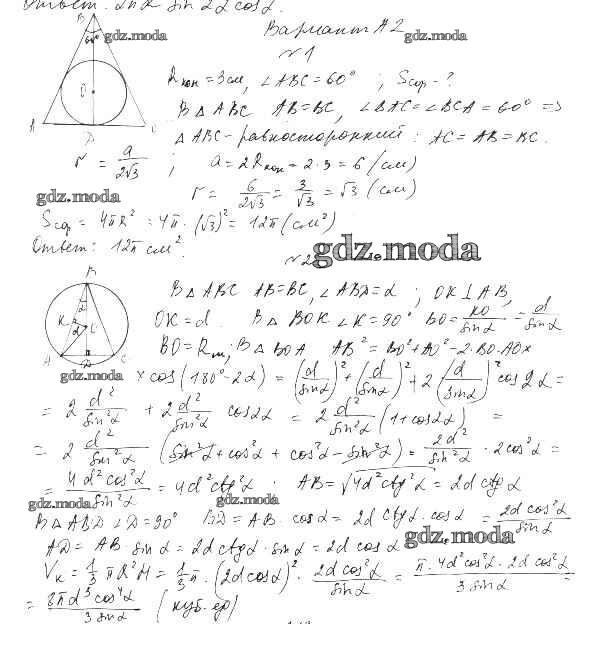 Ответ: 2πR² sin 2α cos α.
Вариант А2
№1
B 60° O A D C
R кон = 3 см, ∠ABC = 60° ; Sсф - ?
В △ABC AB = BC, ∠BAC = ∠BCA = 60° =>
△ABC - равносторонний : AC = AB = BC.
r = a/2√3 ; a = 2Rкон = 2·3 = 6 (см)
r = 6/2√3 = 3/√3 = √3 (см)
gdz.moda
gdz.moda
gdz.moda
Sсф = 4πR² = 4π·(√3)² = 12π (см²)
Ответ: 12π см².
№2
gdz.moda
B K α O A D C
В △ABC AB = BC, ∠ABD = α ; OK ⊥ AB,
OK = d. В △BOK ∠K = 90° BO = KO/sin α = d/sin α
BO = Rш; В △BOA AB² = BO² + AO² - 2·BO·AO×
gdz.moda
× cos(180° - 2α) = (d/sin α)² + (d/sin α)² + 2(d/sin α)² cos 2α =
= 2 d²/sin²α + 2 d²/sin²α cos 2α = 2 d²/sin²α (1 + cos 2α) =
= 2 d²/sin²α (sin²α + cos²α + cos²α - sin²α) = 2d²/sin²α · 2cos²α =
= 4d²cos²α/sin²α = 4d²ctg²α ; AB = √4d²ctg²α = 2d ctg α
gdz.moda
gdz.moda
В △ABD ∠D = 90° BD = AB · cos α = 2d ctg α · cos α = 2d cos²α/sin α
gdz.moda
AD = AB sin α = 2d ctg α · sin α = 2d cos α
Vк = 1/3 πR²H = 1/3 π · (2d cos α)² · 2d cos²α/sin α = π · 4d²cos²α · 2d cos²α/3 sin α =
= 8πd³cos⁴α/3 sin α (куб. ед)